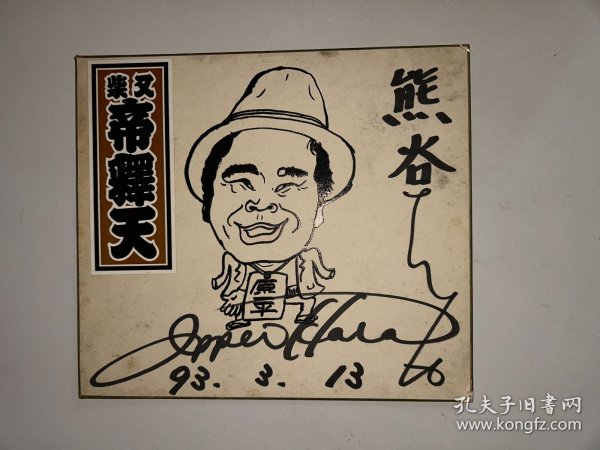 柴又
帝釋天
熊谷さん
原
平
Ippei Hara
93. 3. 13
孔夫子旧書网
www.kongfz.com